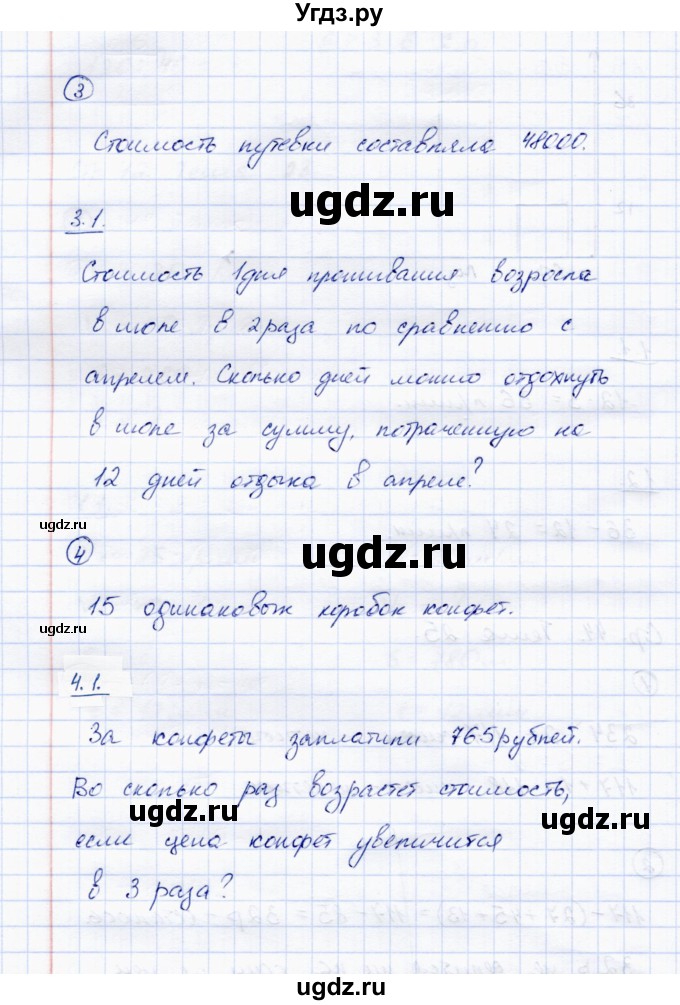 Угдз.ру
3
Стоимость путевки составляла 48000.
ugdz.ru
3.1.
Стоимость 1 дня проживания возросла
в июле в 2 раза по сравнению с
апрелем. Сколько дней можно отдохнуть
в июле за сумму, потраченную на
12 дней отдыха в апреле?
ugdz.ru
ugdz.ru
4
15 одинаковых коробок конфет.
ugdz.ru
4.1.
За конфеты заплатили 765 рублей.
Во сколько раз возрастет стоимость,
ugdz.ru
ugdz.ru
если цена конфет увеличится
в 3 раза?
ugdz.ru